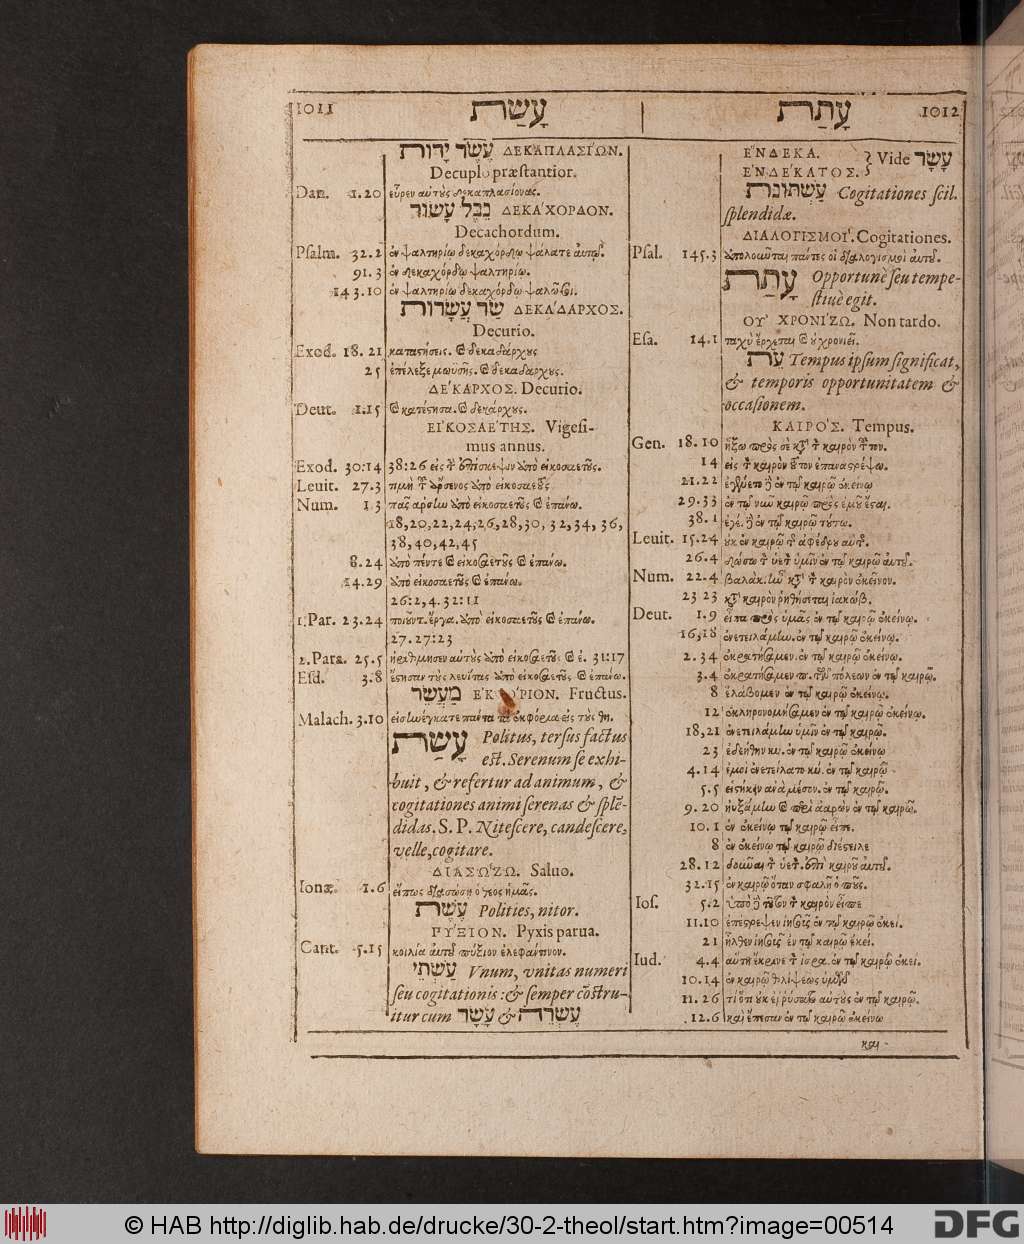 1011 עָשַׁת עָתַת 1012
עֶשֶׂר יָדוֹת ΔΕΚΑΠΛΑΣΊΩΝ.
Decuplo præstantior.
Dan. 1.20 εὗρεν αὐτοὺς δεκαπλασίονας.
נֵבֶל עָשׂוֹר ΔΕΚΑΧΟΡΔΟΝ.
Decachordum.
Psalm. 32.2 ἐν ψαλτηρίῳ δεκαχόρδῳ ψάλατε αὐτῷ.
91.3 ἐν δεκαχόρδῳ ψαλτηρίῳ.
143.10 ἐν ψαλτηρίῳ δεκαχόρδῳ ψαλῶ σοι.
שַׂר עֲשָׂרוֹת ΔΕΚΑΔΑΡΧΟΣ.
Decurio.
Exod. 18.21 καταστήσεις. καὶ δεκαδάρχους
25 ἐπέλεξε μωϋσῆς. καὶ δεκαδάρχους.
ΔΕΚΑΡΧΟΣ. Decurio.
Deut. 1.15 καὶ κατέστησα. καὶ δεκάρχους.
ΕΙΚΟΣΑΕΤΗΣ. Vigesi-
mus annus.
Exod. 30:14 38:26 εἰς τ̀ ἐπίσκεψιν ἀπὸ εἰκοσαετοῦς.
Leuit. 27.3 τιμὴ τοῦ ἄρσενος ἀπὸ εἰκοσαετοῦς
Num. 1.3 πᾶς ἀρσην ἀπὸ εἰκοσαετοῦς καὶ ἐπάνω.
18,20,22,24,26,28,30, 32,34, 36,
38,40,42,45
8.24 ἀπὸ πέντε καὶ εἰκοσαετοῦς καὶ ἐπάνω.
14.29 ἀπὸ εἰκοσαετοῦς καὶ ἐπάνω.
26:2,4. 32:11
1.Par. 23.24 ποιοῦντ. ἔργα. ἀπὸ εἰκοσαετοῦς καὶ ἐπάνω.
27. 27:23
2.Para. 25.5 ἠρίθμησεν αὐτοὺς ἀπὸ εἰκοσαετοῦς καὶ ἐ. 31:17
Esd. 3.8 ἔστησαν τοὺς λευίτας ἀπὸ εἰκοσαετοῦς καὶ ἐπάνω.
מַעֲשֵׂר ΕΚ ΟΡΙΟΝ. Fructus.
Malach. 3.10 εἰσηνέγκατε πάντα τὰ ἐκφόρια εἰς τοὺς θη.
עָשַׁת Politus, tersus factus
est. Serenum se exhi-
buit, & refertur ad animum, &
cogitationes animi serenas & splē-
didas. S. P. Nitescere, candescere,
velle, cogitare.
ΔΙΑΣΩΖΩ. Saluo.
Ionæ. 1.6 εἴπως διασώσῃ ὁ θεος ἡμᾶς.
עֶשֶׁת Polities, nitor.
ΠΥΞΙΟΝ. Pyxis parua.
Cant. 5.15 κοιλία αὐτοῦ πύξιον ἐλεφάντινον.
עַשְׁתֵּי Vnum, vnitas numeri
seu cogitationis: & semper cōstru-
itur cum עָשָׂר & עֶשְׂרֵה
ΕΝΔΕΚΑ.
ΕΝΔΕΚΑΤΟΣ. } Vide עָשָׂר
עַשְׁתּוֹנֹת Cogitationes scil.
splendidæ.
ΔΙΑΛΟΓΙΣΜΟΙ. Cogitationes.
Psal. 145.3 ἀπολοῦνται πάντες οἱ διαλογισμοὶ αὐτοῦ.
עָתַת Opportunè seu tempe-
stiuè egit.
ΟΥ ΧΡΟΝΙΖΩ. Non tardo.
Esa. 14.1 ταχὺ ἔρχεται καὶ οὐ χρονιεῖ.
עֵת Tempus ipsum significat,
& temporis opportunitatem &
occasionem.
ΚΑΙΡΟΣ. Tempus.
Gen. 18.10 ἥξω πρὸς σὲ κατὰ τ̀ καιρὸν τοῦτον.
14 εἰς τ̀ καιρὸν τοῦτον ἐπαναστρέψω.
21.22 ἐγένετο δὲ ἐν τῷ καιρῷ ἐκείνῳ
29.33 ἐν τῷ νῦν καιρῷ πρὸς ἐμοῦ ἔσται.
38.1 ἐγέ. δὲ ἐν τῷ καιρῷ τούτῳ.
Leuit. 15.24 οὐκ ἐν καιρῷ τ̀ ἀφέδρου αὐτ.
26.4 δώσω τ̀ ὑετὸν ὑμῖν ἐν τῷ καιρῷ αὐτοῦ.
Num. 22.4 βαλάκ. ἦν κατὰ τ̀ καιρὸν ἐκεῖνον.
23 23 κατὰ καιρὸν ῥηθήσεται ἰακώβ.
Deut. 1.9 εἶπα πρὸς ὑμᾶς ἐν τῷ καιρῷ ἐκείνῳ.
16,18 ἐνετειλάμην. ἐν τῷ καιρῷ ἐκείνῳ.
2.34 ἐκρατήσαμεν. ἐν τῷ καιρῷ ἐκείνῳ.
3.4 ἐκρατήσαμεν π. τῶν πόλεων ἐν τῷ καιρῷ.
8 ἐλάβομεν ἐν τῷ καιρῷ ἐκείνῳ.
12 ἐκληρονομήσαμεν ἐν τῷ καιρῷ ἐκείνῳ.
18,21 ἐνετειλάμην ὑμῖν ἐν τῷ καιρῷ.
23 ἐδεήθην κυ. ἐν τῷ καιρῷ ἐκείνῳ
4.14 ἐμοὶ ἐνετείλατο κύ. ἐν τῷ καιρῷ
5.5 εἱστήκειν ἀνὰ μέσον. ἐν τῷ καιρῷ.
9.20 ηὐξάμην καὶ περὶ ἀαρὼν ἐν τῷ καιρῷ.
10.1 ἐν ἐκείνῳ τῷ καιρῷ εἶπε.
8 ἐν ἐκείνῳ τῷ καιρῷ διέστειλε
28.12 δοῦναι τ̀ ὑετ. ἐπὶ καιροῦ αὐτοῦ.
32.15 ἐν καιρῷ ὅταν σφαλῇ ὁ ποῦς.
Ios. 5.2 ὑπὸ δὲ τοῦτον τ̀ καιρὸν εἶπε
11.10 ἐπέστρεψεν ἰησοῦς ἐν τῷ καιρῷ ἐκεί.
21 ἦλθεν ἰησοῦς ἐν τῷ καιρῷ ἐκεί.
Iud. 4.4 αὕτη ἔκρινε τ̀ ἰσρα. ἐν τῷ καιρῷ ἐκει.
10.14 ἐν καιρῷ θλίψεως ὑμῶν
11.26 τί ὅτι οὐκ ἐρρύσω αὐτοὺς ἐν τῷ καιρῷ.
12.6 καὶ ἔπεσαν ἐν τῷ καιρῷ ἐκείνῳ
και
© HAB http://diglib.hab.de/drucke/30-2-theol/start.htm?image=00514
DFG